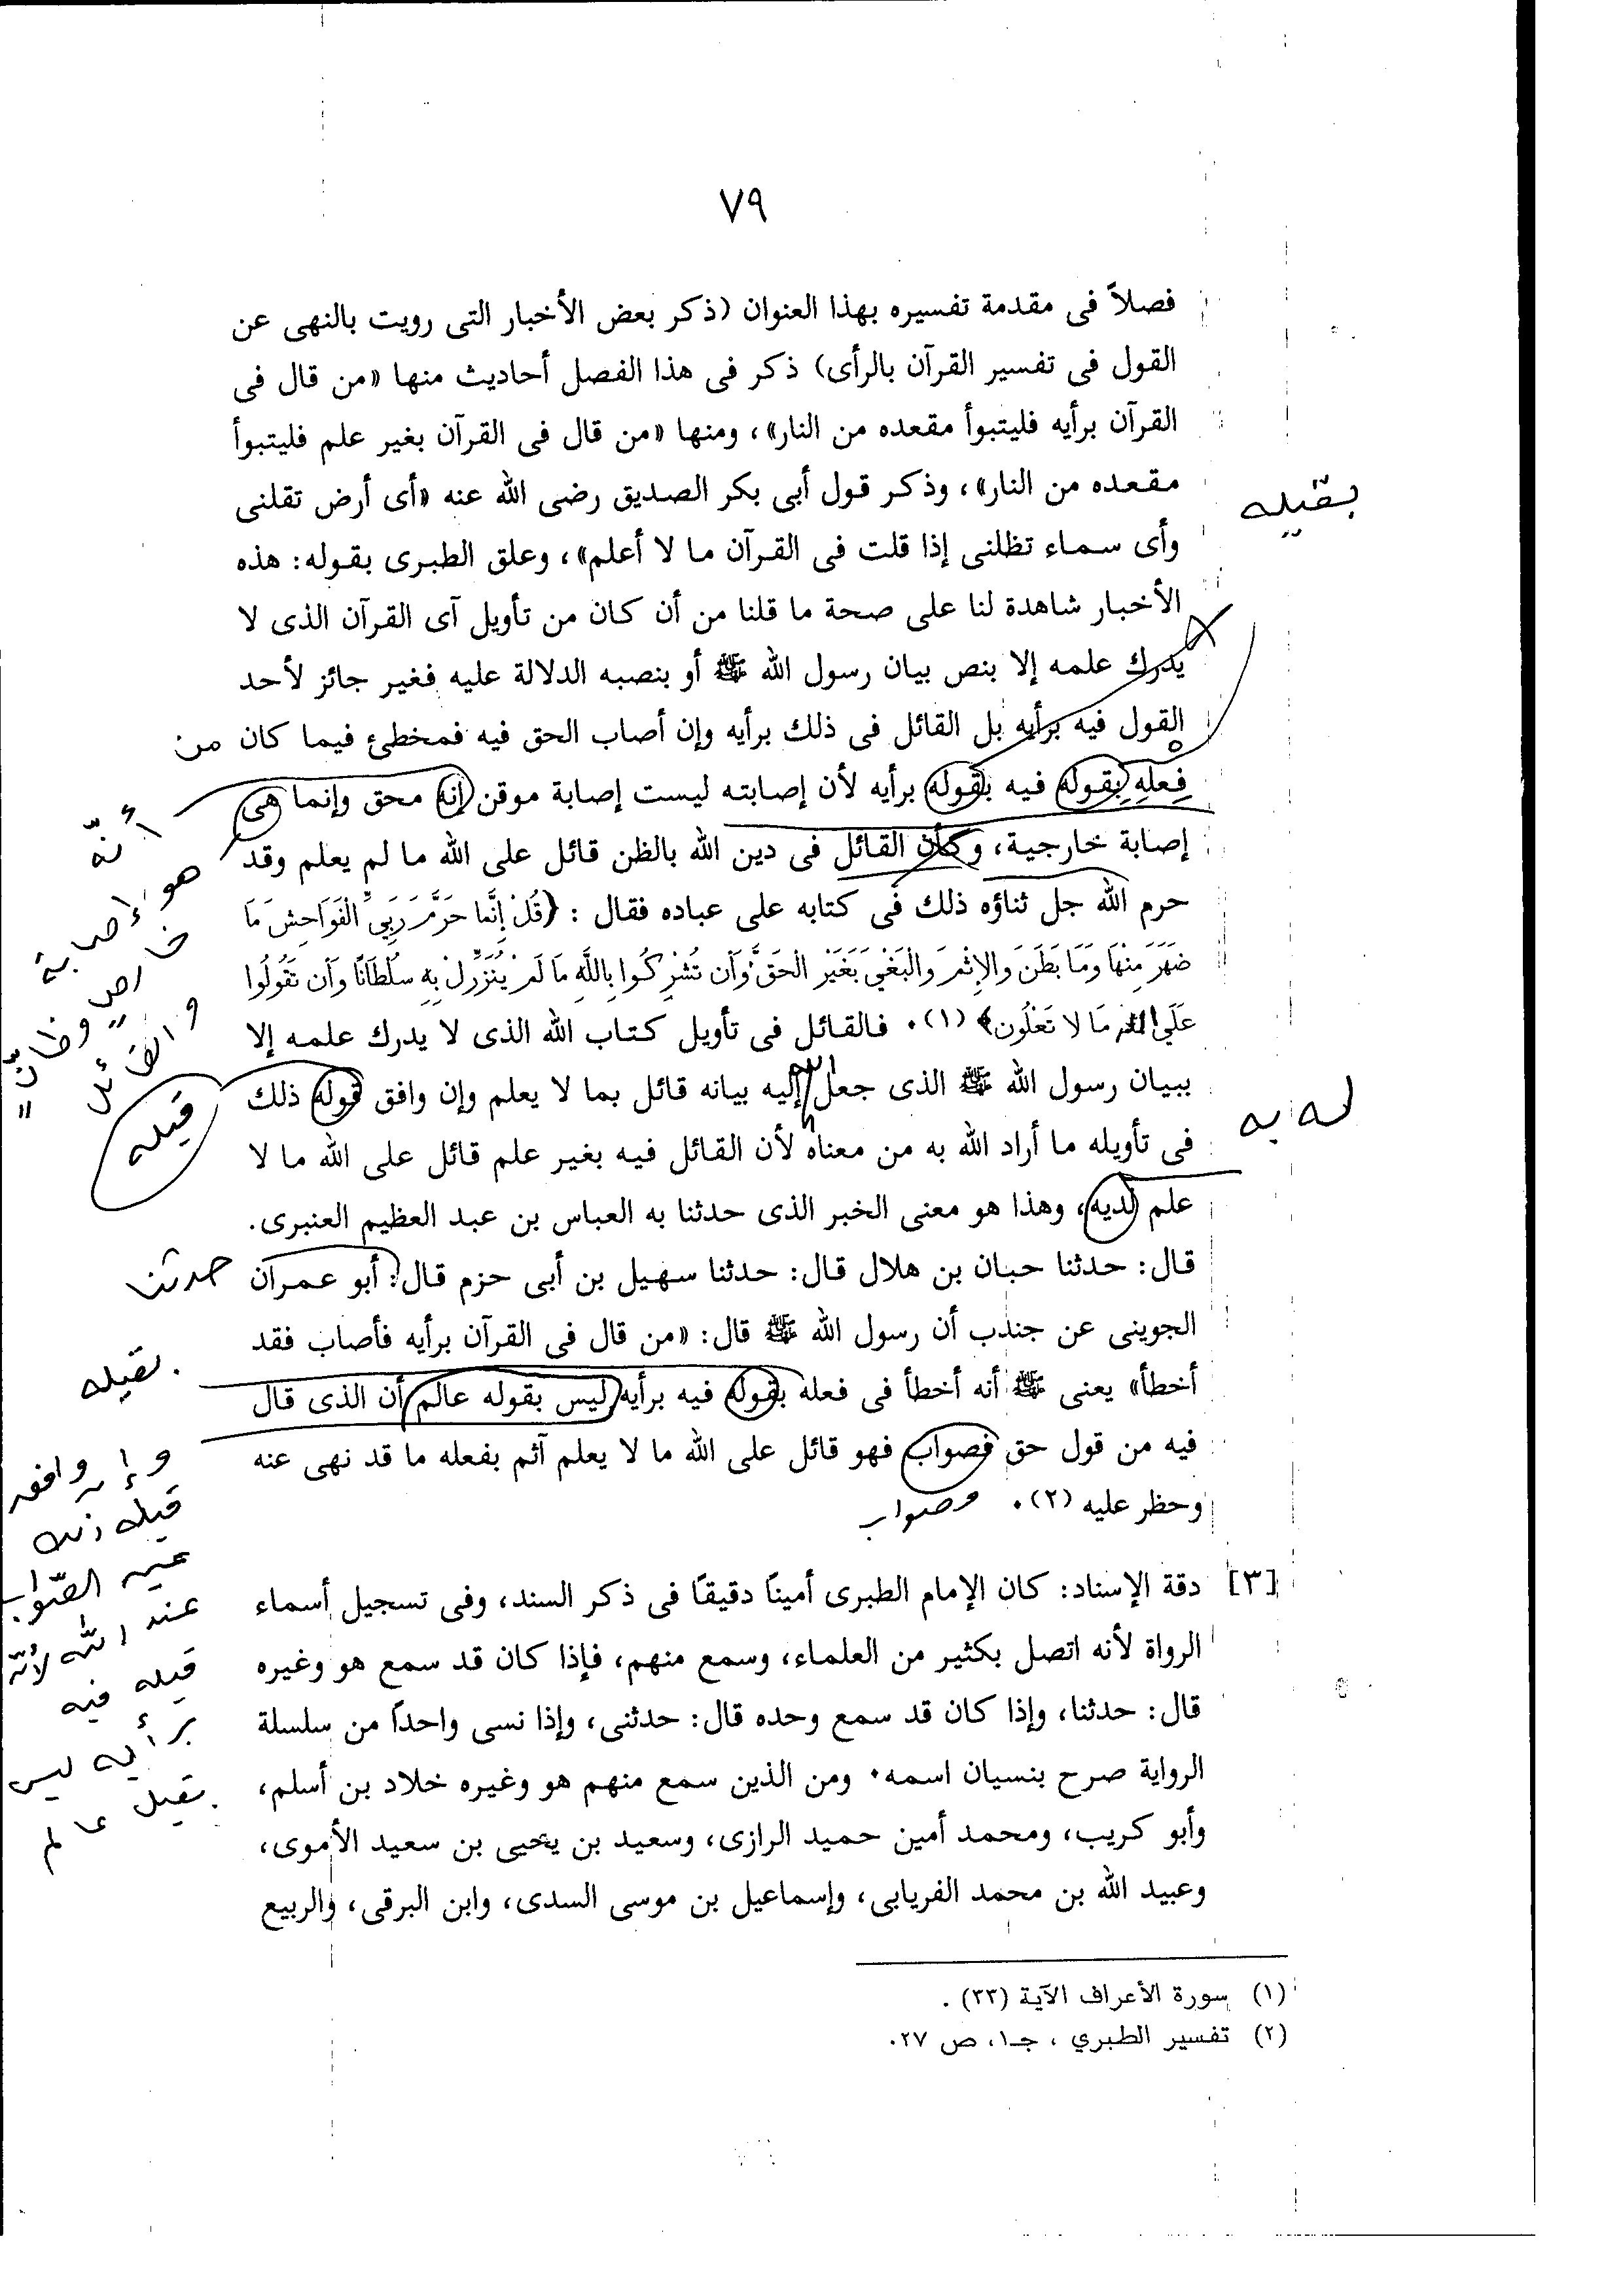 ٧٩
فصلاً فى مقدمة تفسيره بهذا العنوان (ذكر بعض الأخبار التى رويت بالنهى عن
القول فى تفسير القرآن بالرأى) ذكر فى هذا الفصل أحاديث منها «من قال فى
القرآن برأيه فليتبوأ مقعده من النار»، ومنها «من قال فى القرآن بغير علم فليتبوأ
مقعده من النار»، وذكر قول أبى بكر الصديق رضى الله عنه «أى أرض تقلنى
بقيله
وأى سماء تظلنى إذا قلت فى القرآن ما لا أعلم»، وعلق الطبرى بقوله: هذه
الأخبار شاهدة لنا على صحة ما قلنا من أن كان من تأويل آى القرآن الذى لا
يدرك علمه إلا بنص بيان رسول الله ﷺ أو بنصبه الدلالة عليه فغير جائز لأحد
القول فيه برأيه بل القائل فى ذلك برأيه وإن أصاب الحق فيه فمخطئ فيما كان من
فِعلِهِ بِقوله فيه بقوله برأيه لأن إصابته ليست إصابة موقن إنه محق وإنما هى
أنّه
إصابة خارجية، وكأن القائل فى دين الله بالظن قائل على الله ما لم يعلم وقد
هو إصابة
خارص وظانّ
والقائل
حرم الله جل ثناؤه ذلك فى كتابه على عباده فقال : {قُلْ إِنَّمَا حَرَّمَ رَبِّيَ الْفَوَاحِشَ مَا
ضَهَرَ مِنْهَا وَمَا بَطَنَ وَالإِثْمَ وَالْبَغْيَ بَغَيْرِ الْحَقِّ وَأَن تُشْرِكُوا بِاللَّهِ مَا لَمْ يُنَزِّلْ بِهِ سُلْطَانًا وَأَن تَقُولُوا
عَلَى الله مَا لا تَعْلَمُون﴾ (١). فالقائل فى تأويل كتاب الله الذى لا يدرك علمه إلا
ببيان رسول الله ﷺ الذى جعل إليه بيانه قائل بما لا يعلم وإن وافق قوله ذلك
الله
قيله
له به
فى تأويله ما أراد الله به من معناه لأن القائل فيه بغير علم قائل على الله ما لا
علم لديه، وهذا هو معنى الخبر الذى حدثنا به العباس بن عبد العظيم العنبرى.
قال: حدثنا حبان بن هلال قال: حدثنا سهيل بن أبى حزم قال: أبو عمران
حدثنا
الجوينى عن جندب أن رسول الله ﷺ قال: «من قال فى القرآن برأيه فأصاب فقد
أخطأ» يعنى ﷺ أنه أخطأ فى فعله بقوله فيه برأيه ليس بقوله عالم أن الذى قال
بقيله
فيه من قول حق فصواب فهو قائل على الله ما لا يعلم آثم بفعله ما قد نهى عنه
وحظر عليه (٢).
وصواب
وإن وافق
قيله ذلك
عين الصّواب
عند الله لأنّه
قيله فيه
برأيه ليس
بقيل عالم
[٣] دقة الإسناد: كان الإمام الطبرى أمينًا دقيقًا فى ذكر السند، وفى تسجيل أسماء
الرواة لأنه اتصل بكثير من العلماء، وسمع منهم، فإذا كان قد سمع هو وغيره
قال: حدثنا، وإذا كان قد سمع وحده قال: حدثنى، وإذا نسى واحداً من سلسلة
الرواية صرح بنسيان اسمه. ومن الذين سمع منهم هو وغيره خلاد بن أسلم،
وأبو كريب، ومحمد أمين حميد الرازى، وسعيد بن يحيى بن سعيد الأموى،
وعبيد الله بن محمد الفريابى، وإسماعيل بن موسى السدى، وابن البرقى، والربيع
(١) سورة الأعراف الآية (٣٣) .
(٢) تفسير الطبري ، جـ١، ص ٢٧.